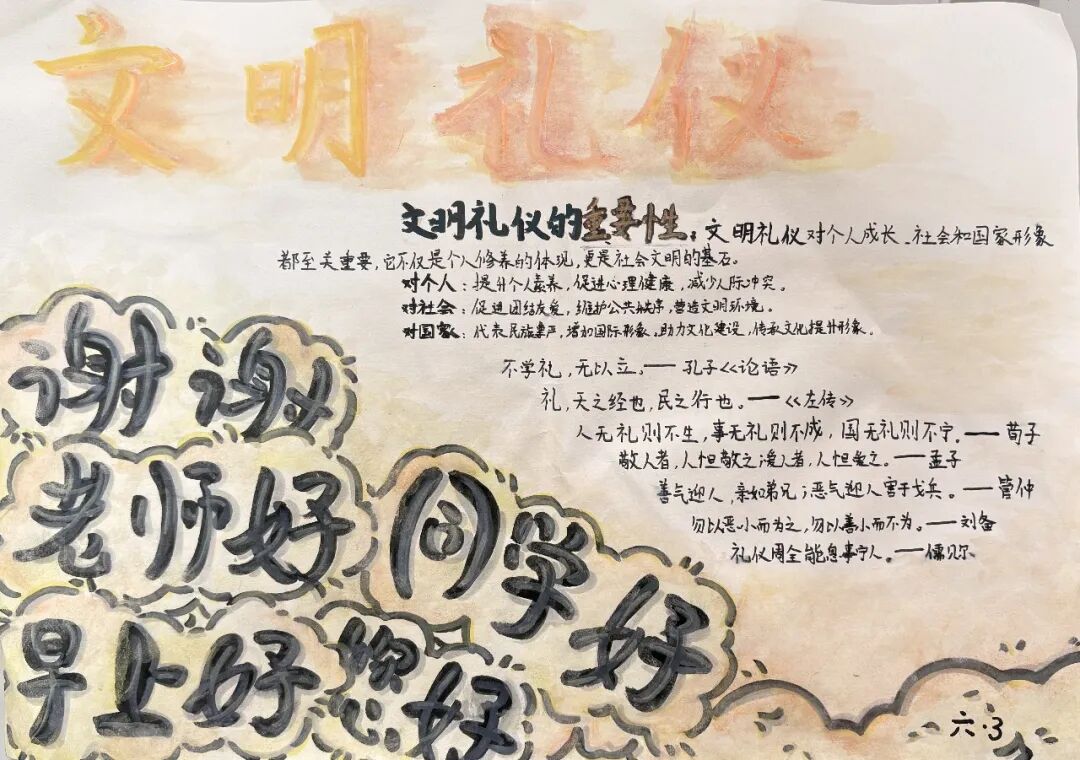 文明礼仪
文明礼仪的重要性：文明礼仪对个人成长、社会和国家形象
都至关重要，它不仅是个人修养的体现，更是社会文明的基石。
对个人：提升个人素养，促进心理健康，减少人际冲突。
对社会：促进团结友爱，维护公共秩序，营造文明环境。
对国家：代表民族素严，增加国际形象，助力文化建设，传承文化提升形象。
不学礼，无以立。——孔子《论语》
礼，天之经也，民之行也。——《左传》
人无礼则不生，事无礼则不成，国无礼则不宁。——荀子
敬人者，人恒敬之爱人者，人恒爱之。——孟子
善气迎人，亲如弟兄；恶气迎人害于戈兵。——管仲
勿以恶小而为之，勿以善小而不为。——刘备
礼仪周全能息事宁人。——儒贝尔
谢谢
老师好
同学好
早上好
您好
六·3